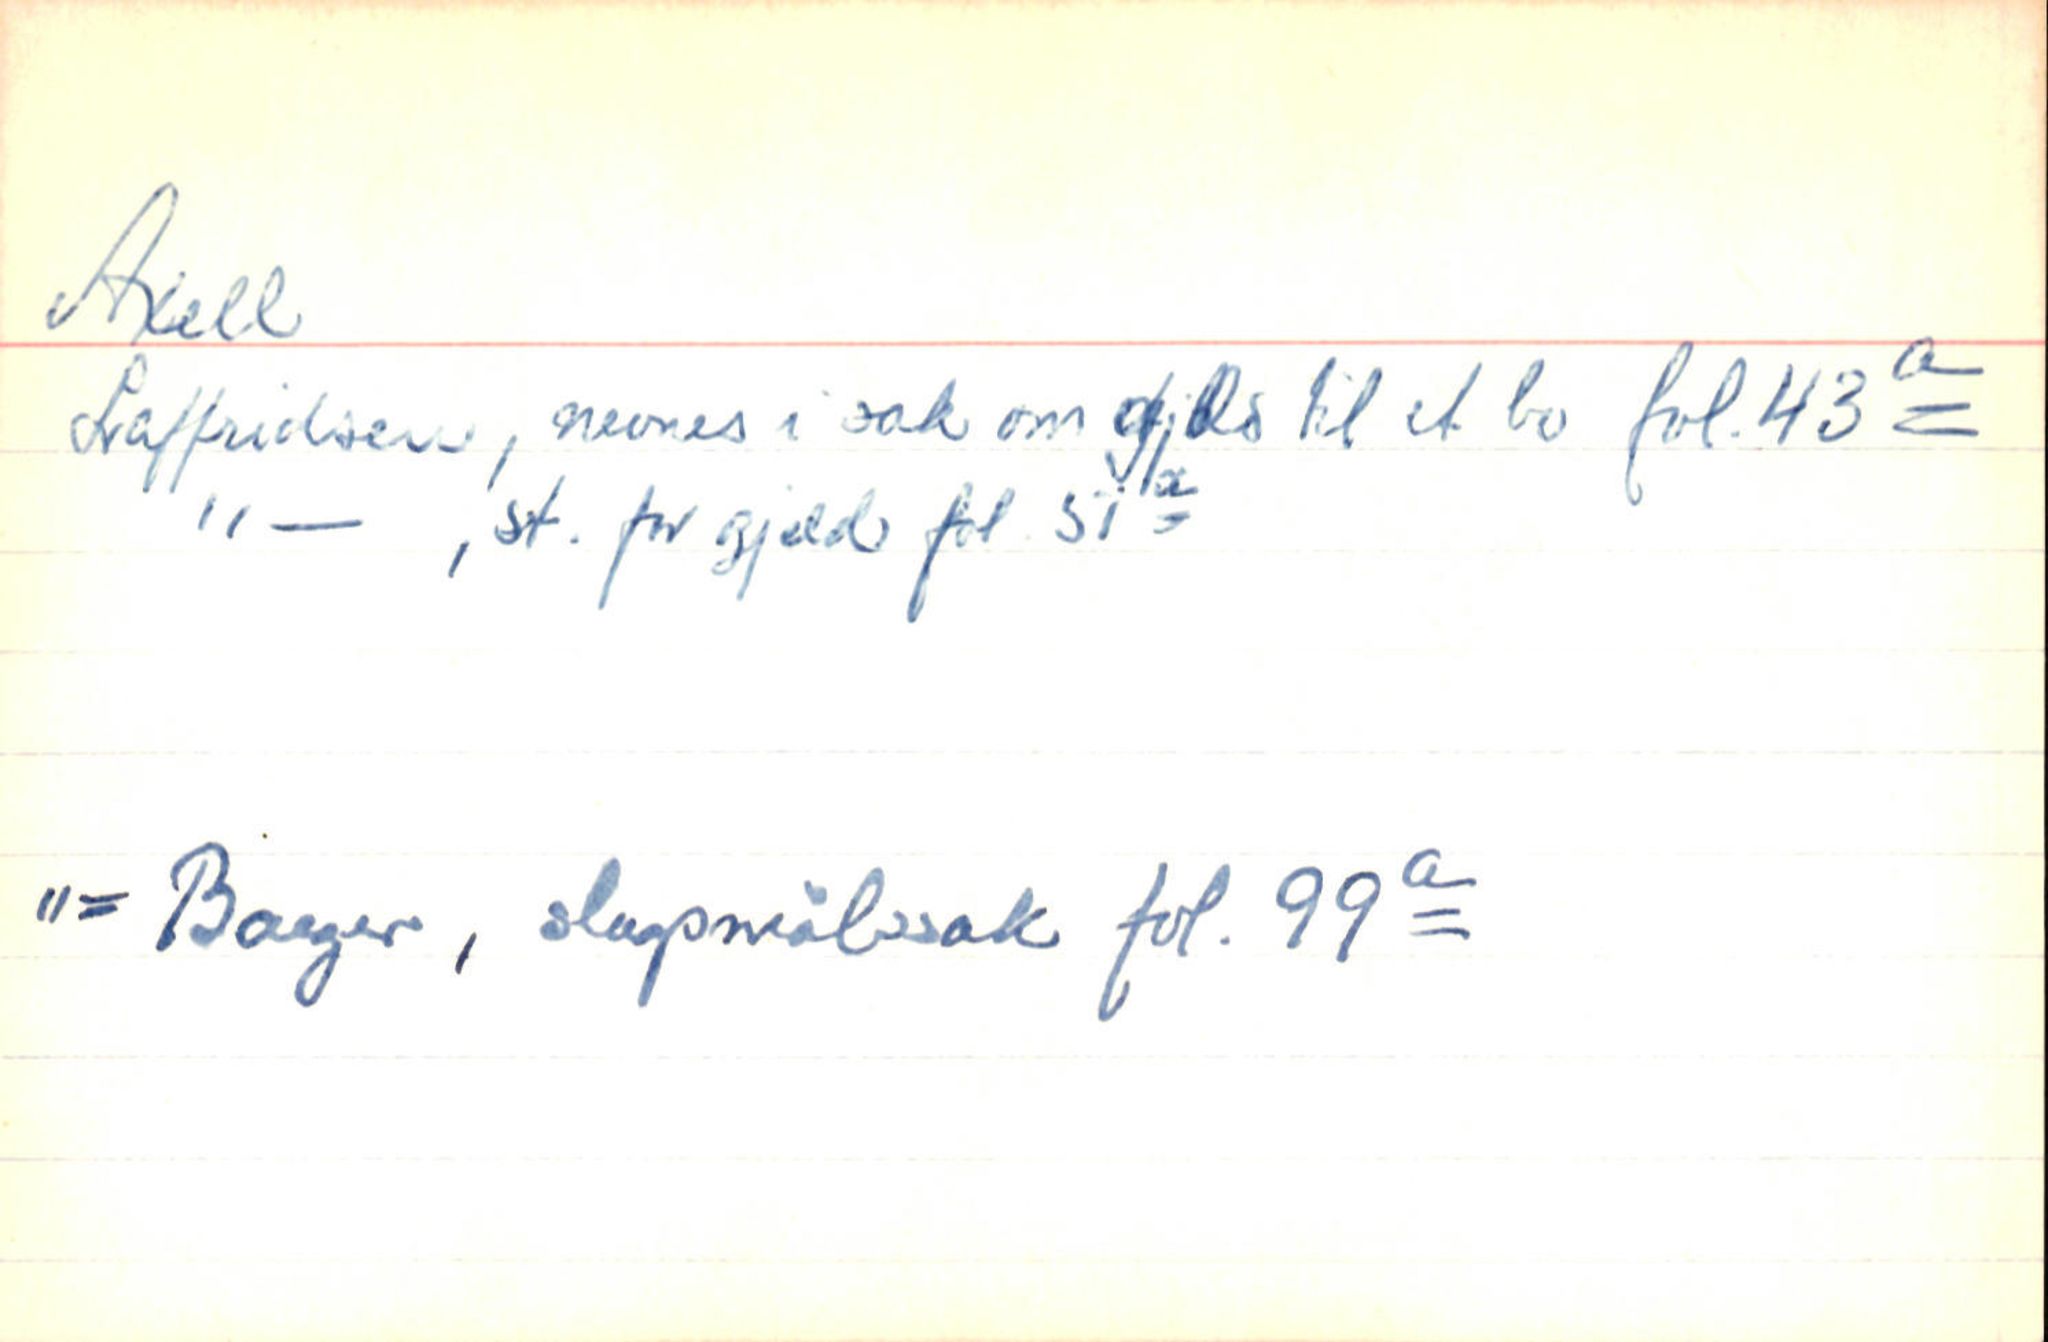 Axell
Laffridsen, nevnes i sak om gjelds til et bo fol. 43 a
" — , st. for gjeld fol. 51 a
"= Baeger, slagsmålssak fol. 99 a